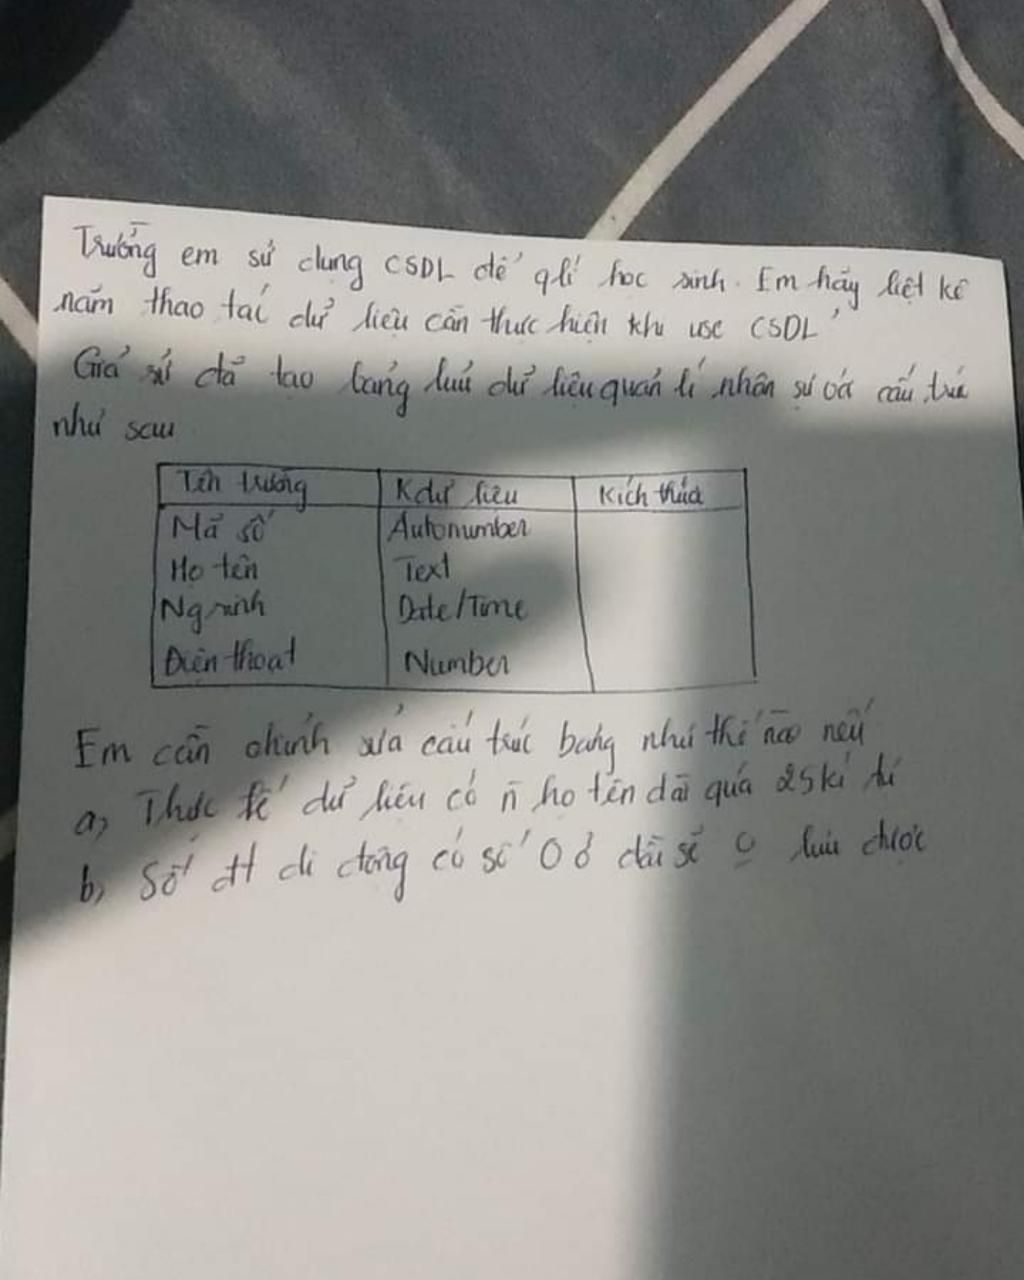 Trường em sử dụng CSDL để qlí học sinh. Em hãy liệt kê
năm thao tác dữ liệu cần thực hiện khi use CSDL
Giả sử đã tạo bảng lưu dữ liệu quản lí nhân sự với cấu trúc
như sau
Tên trường Kdữ liệu Kích thước
Mã số Autonumber
Họ tên Text
Ng sinh Date/Time
Điện thoại Number
Em cần chỉnh sửa cấu trúc bảng như thế nào nếu
a, Thực tế dữ liệu có ñ họ tên dài quá 25 kí tự
b, Số đt di động có số 0 ở đầu sẽ lưu được